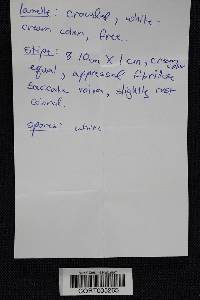 lamelle: crowded, white-
cream color, free.
stipe: 8-10cm X 1cm, cream
color
equal, appressed fibrillose
saccate volva, slightly rust
colored.
spores: white
CORT008265